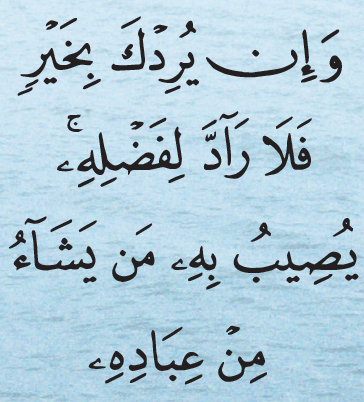 وَإِن يُرِدْكَ بِخَيْرٍ
فَلَا رَآدَّ لِفَضْلِهِۦ ۚ
يُصِيبُ بِهِۦ مَن يَشَآءُ
مِنْ عِبَادِهِۦ